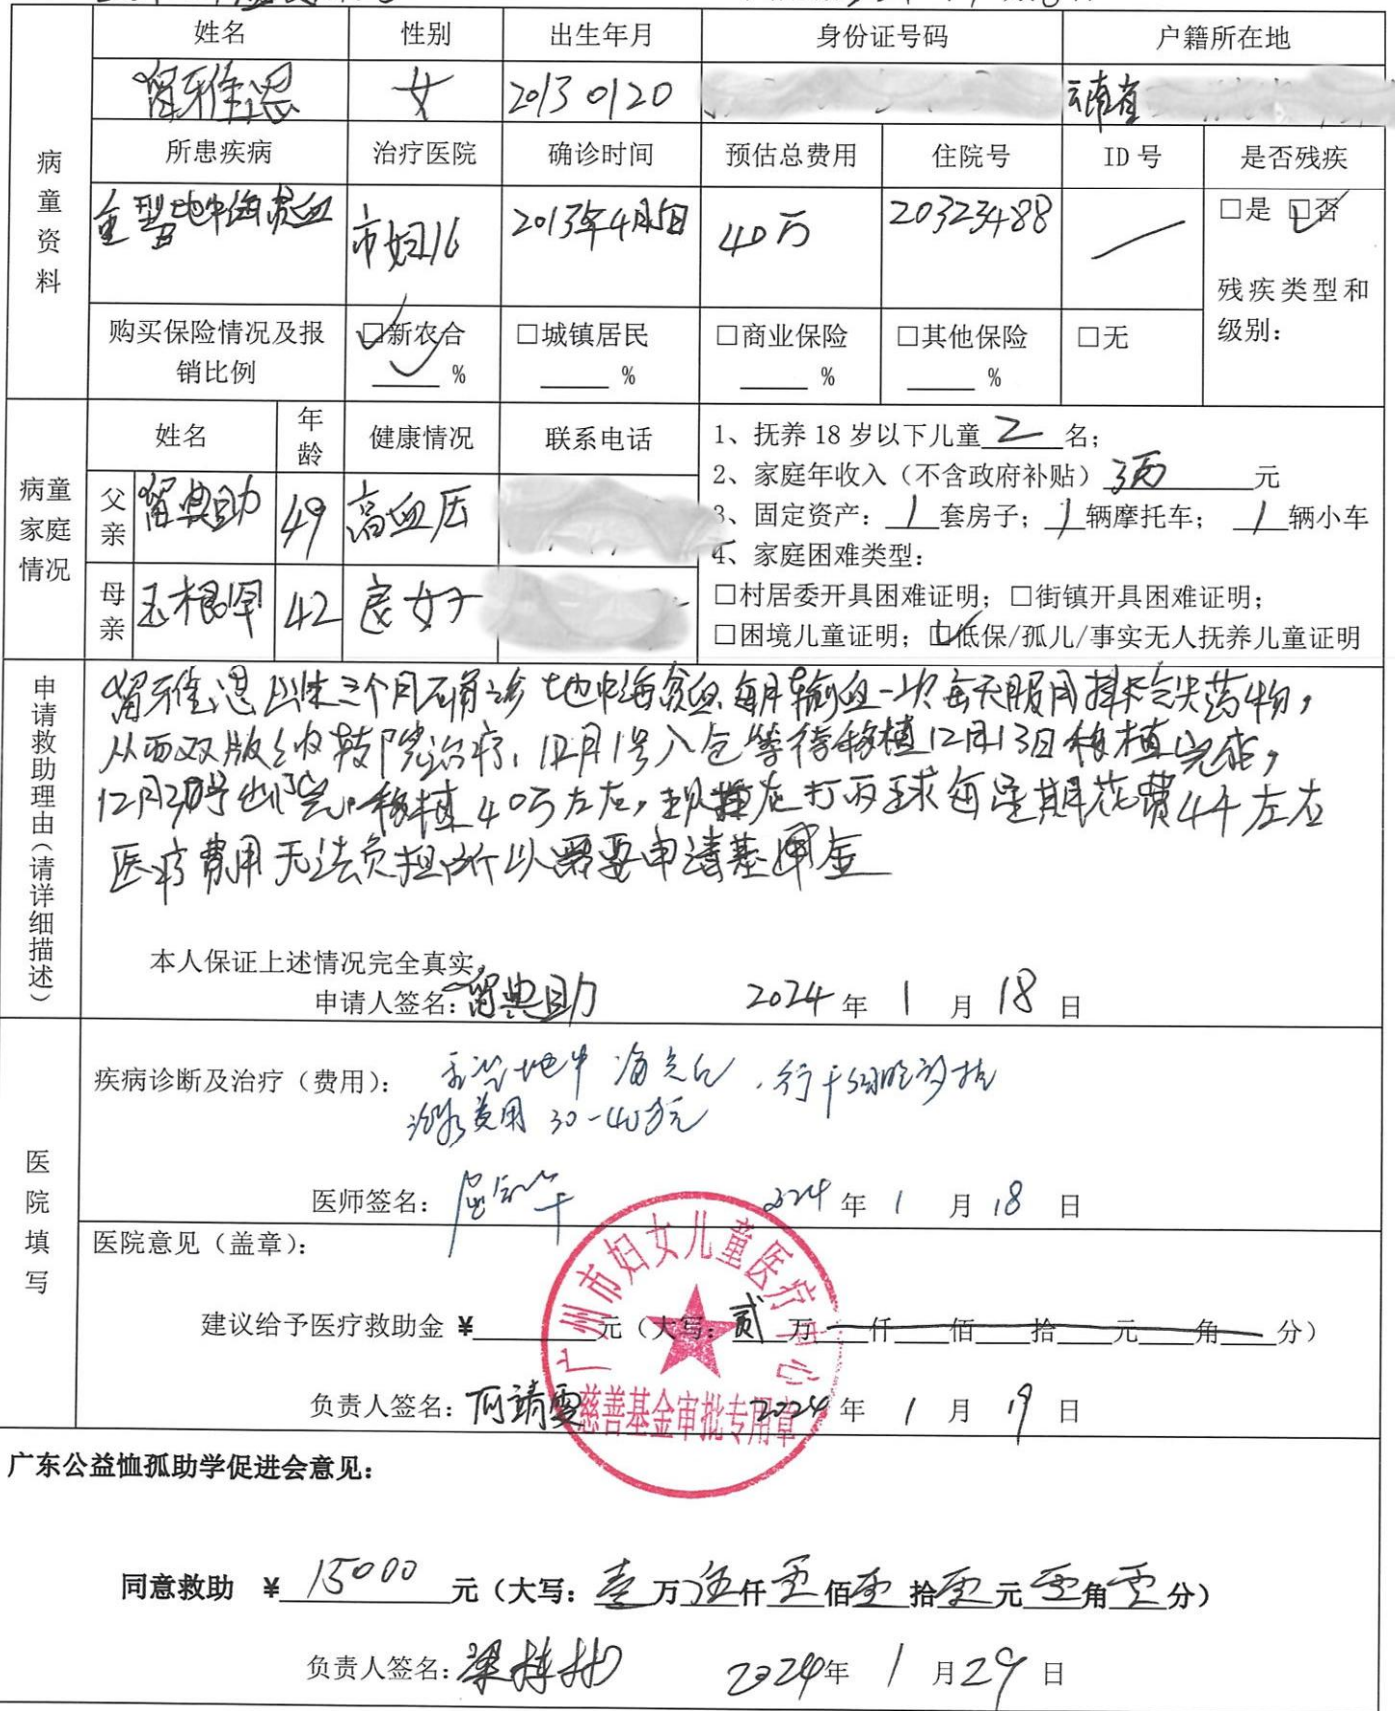 姓名 性别 出生年月 身份证号码 户籍所在地
留雅恩 女 20130120 云南省
病童资料
所患疾病 治疗医院 确诊时间 预估总费用 住院号 ID 号 是否残疾
重型地中海贫血 市妇16 2013年4月5日 40万 20323488 □是 □否
残疾类型和级别：
购买保险情况及报销比例 □新农合 ____% □城镇居民 ____% □商业保险 ____% □其他保险 ____% □无
病童家庭情况
姓名 年龄 健康情况 联系电话
父亲 留典助 49 高血压
母亲 玉根罕 42 良好
1、抚养 18 岁以下儿童 2 名；
2、家庭年收入（不含政府补贴） 元
3、固定资产： 1 套房子； 1 辆摩托车； 1 辆小车
4、家庭困难类型：
□村居委开具困难证明；□街镇开具困难证明；
□困境儿童证明；□低保/孤儿/事实无人抚养儿童证明
申请救助理由（请详细描述）
留雅恩出生三个月确诊地中海贫血每月输血一次每天服用排铁药物，
从西双版纳转院治疗，12月1号入仓等待移植12月13日移植完成，
12月30号出院。移植40万左右，现在打丙球每星期花费4千左右
医疗费用无法负担所以需要申请基金
本人保证上述情况完全真实。
申请人签名：留典助 2024 年 1 月 18 日
医院填写
疾病诊断及治疗（费用）： 地中海贫血，行干细胞移植
治疗费用 30-40万元
医师签名： 2024 年 1 月 18 日
医院意见（盖章）：
建议给予医疗救助金 ¥____元（大写：贰万__仟__佰__拾__元__角__分）
负责人签名：何靖雯 2024 年 1 月 19 日
广州市妇女儿童医疗中心
慈善基金审批专用章
广东公益恤孤助学促进会意见：
同意救助 ¥ 15000 元（大写：壹万伍仟零佰零拾零元零角零分）
负责人签名： 2024年 1 月29 日